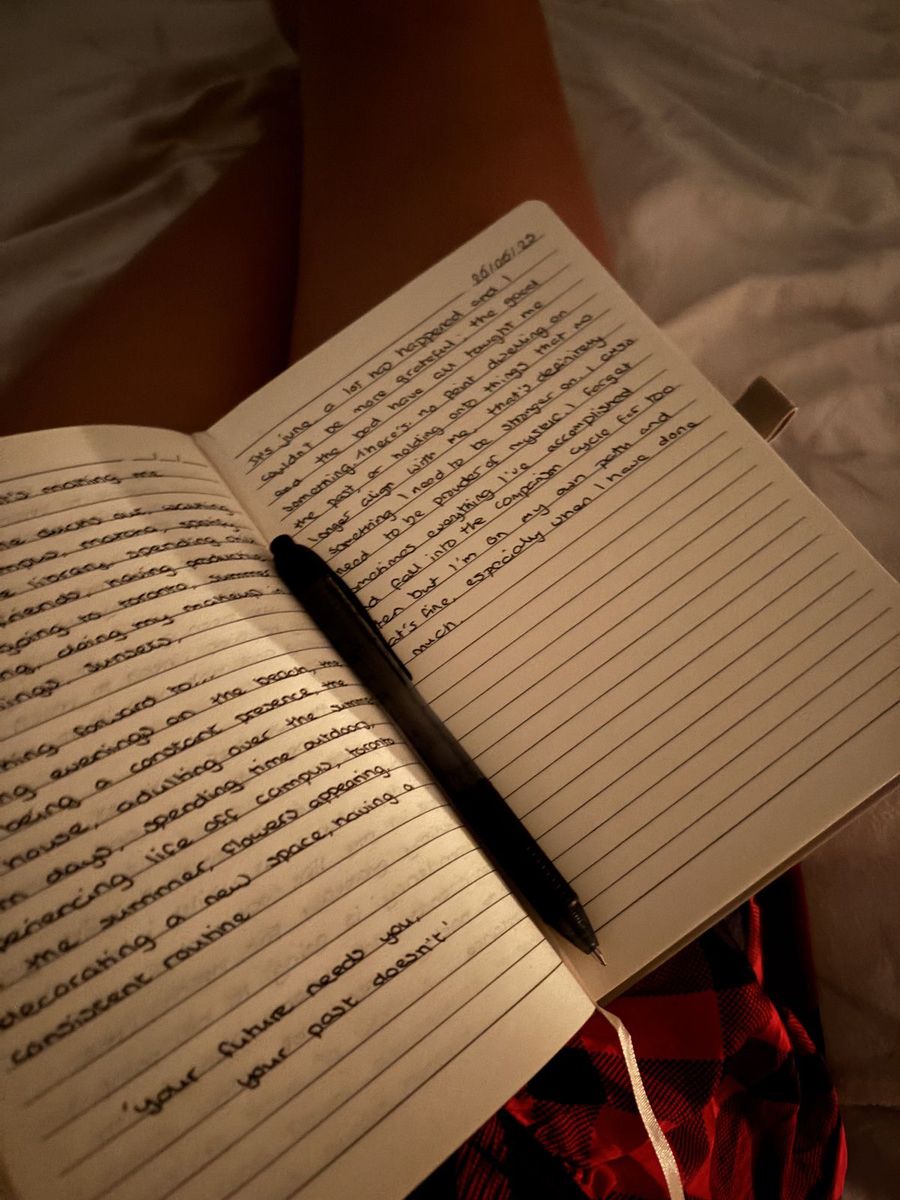 it's making me
the ducks are
campus, making
library, spending
friends, having
going to toronto, summer
doing my makeup
sunsets,
forward to...
evenings on the beach, the
being a constant presence, the
house, adulting over the summer
days, spending time outdoors,
experiencing life off campus, toronto
the summer, flowers appearing,
decorating a new space, having a
consistent routine
'your future needs you,
your past doesn't'
It's june a lot has happened and I
couldn't be more grateful, the good
and the bad have all tought me
something. There's no point dwelling on
the past, or holding onto things that no
longer align with me, that's definitely
something I need to be stronger on. I also
need to be prouder of myself, I forget
sometimes everything I've accomplished
and fall into the comparison cycle far too
often but I'm on my own path and
that's fine, especially when I have done
much.